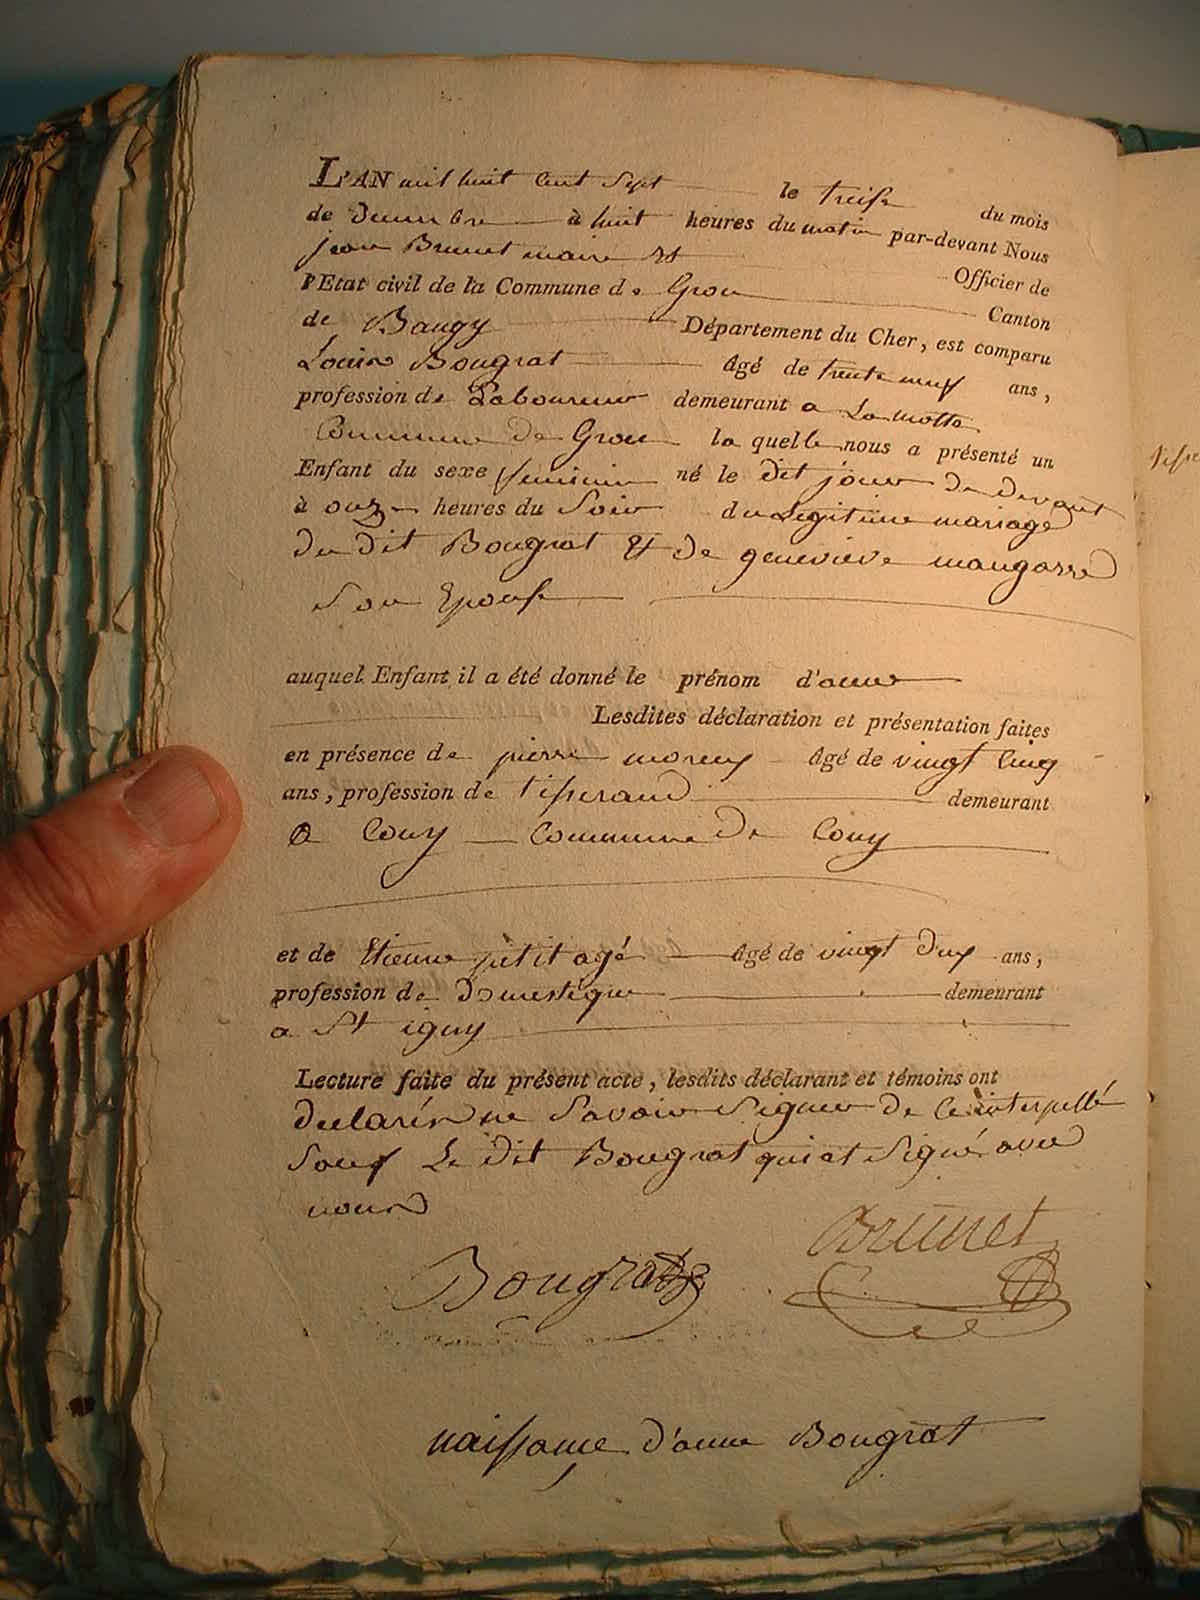 L'AN mil huit cent sept le treise du mois
de decembre à huit heures du matin par-devant Nous
jean Brunet maire et Officier de
l'Etat civil de la Commune de Grou Canton
de Baugy Département du Cher, est comparu
Louis Bougrat Agé de trente neuf ans,
profession de Laboureur demeurant a La motte
Commune de Grou la quelle nous a présenté un
Enfant du sexe feminin né le dit jour de devant
à onze heures du Soir du Legitime mariage
du dit Bougrat Et de genevieve maugarre
Son Epouse
auquel Enfant il a été donné le prénom d'anne
Lesdites déclaration et présentation faites
en présence de pierre moreux Agé de vingt Cinq
ans, profession de tisserand demeurant
a Couy Commune de Couy
et de Etienne petit agé Agé de vingt deux ans,
profession de Domestique demeurant
a St igny
Lecture faite du présent acte, lesdits déclarant et témoins ont
declarés ne Savoir Signer de Ce interpellé
Sauf Le dit Bougrat qui at Signé avec
nous
Bougrat Brunet
naissance d'anne Bougrat